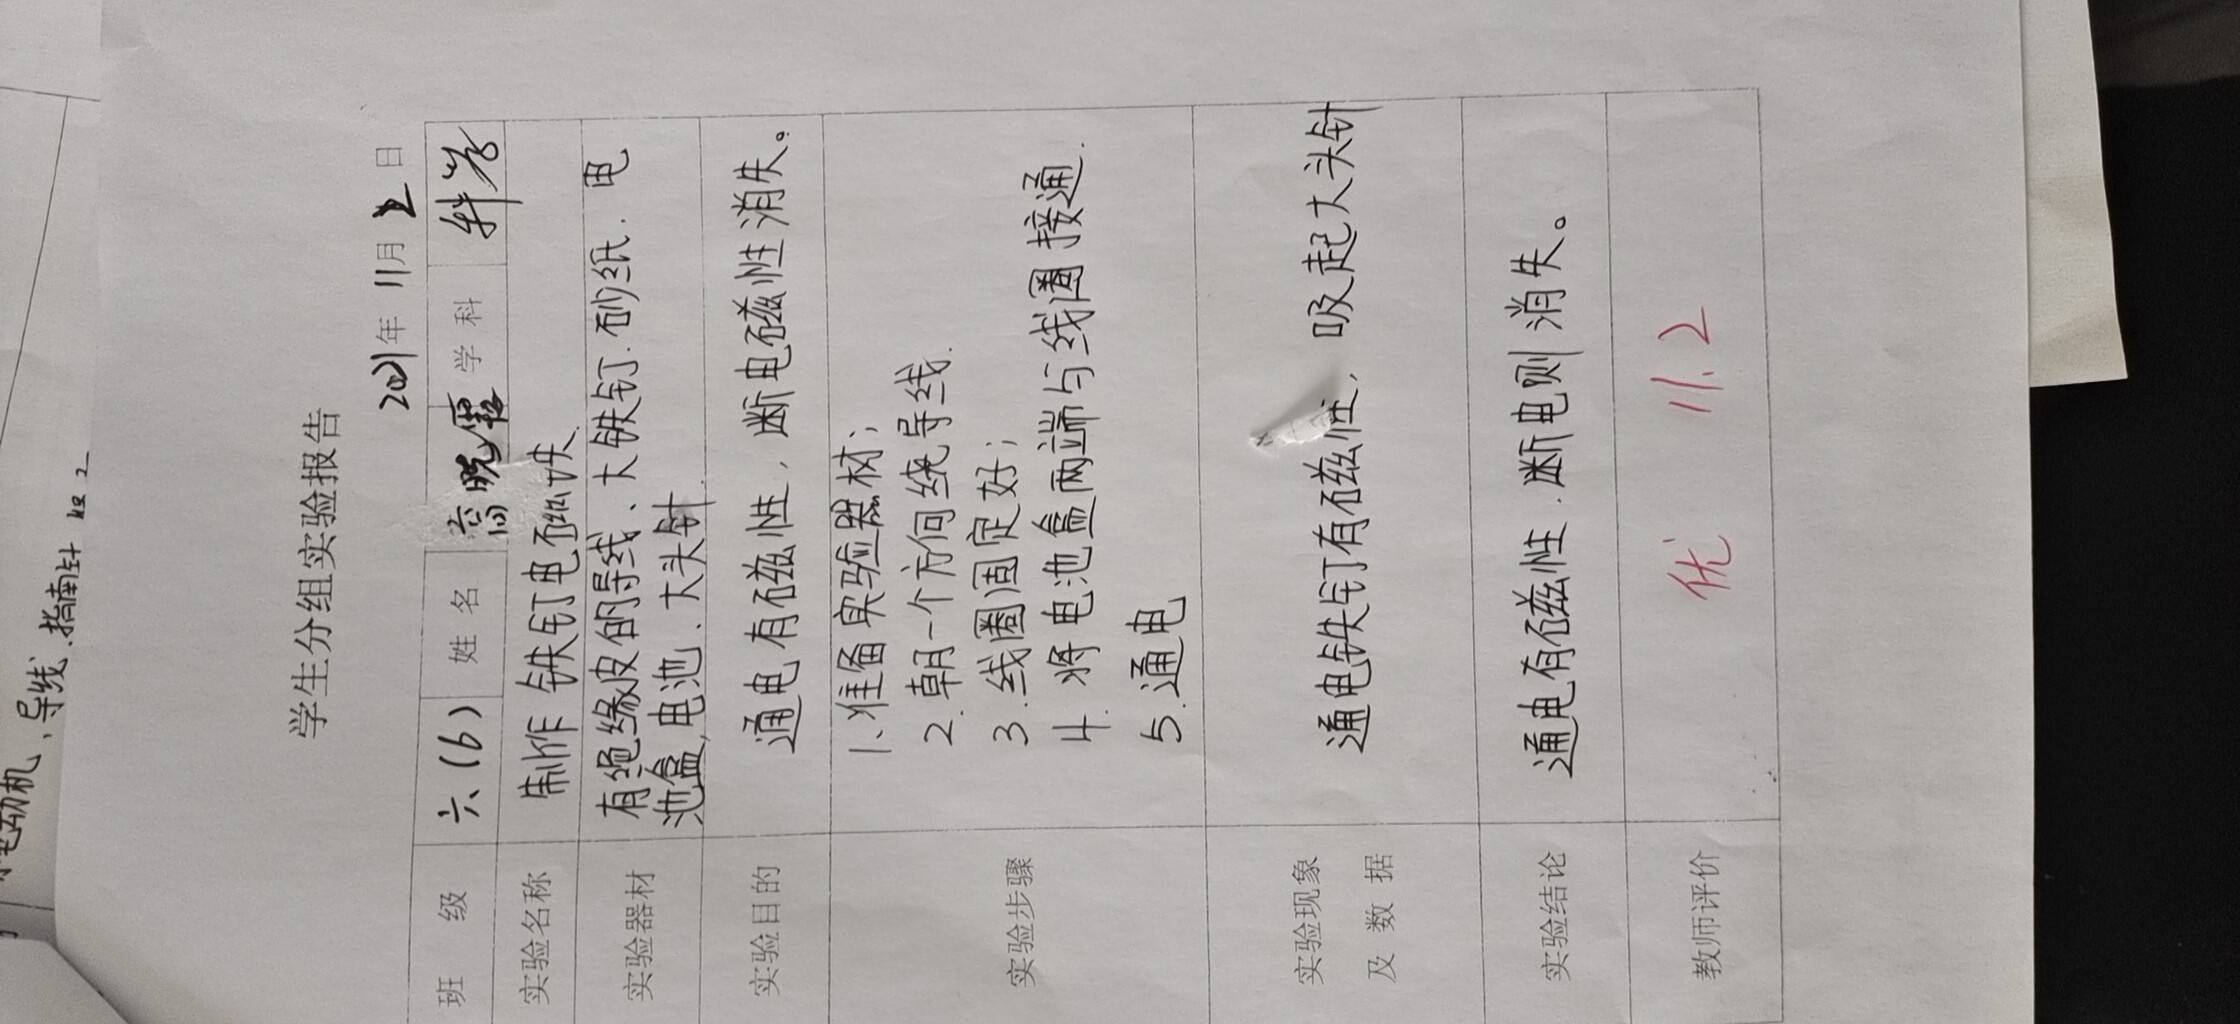 学生分组实验报告
2021年 11月 2日
班 级 六(6) 姓 名 高晓露 学 科 科学
实验名称 制作铁钉电磁铁
实验器材 有绝缘皮的导线、大铁钉.砂纸.电
池盒,电池.大头针.
实验目的 通电有磁性,断电磁性消失。
实验步骤 1.准备实验器材;
2.朝一个方向绕导线.
3.线圈固定好;
4.将电池盒两端与线圈接通.
5.通电
实验现象
及 数 据 通电铁钉有磁性,吸起大头针
实验结论 通电有磁性.断电则消失。
教师评价 优 11.2
电动机、导线、指南针